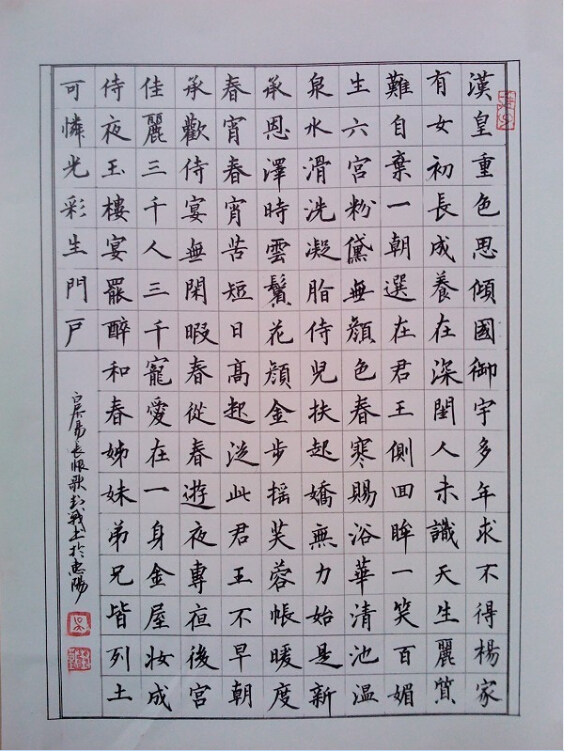 漢皇重色思傾國御宇多年求不得楊家
有女初長成養在深閨人未識天生麗質
難自棄一朝選在君王側回眸一笑百媚
生六宮粉黛無顔色春寒賜浴華清池温
泉水滑洗凝脂侍兒扶起嬌無力始是新
承恩澤時雲鬢花顔金步搖芙蓉帳暖度
春宵春宵苦短日高起從此君王不早朝
承歡侍宴無閑暇春從春遊夜專夜後宮
佳麗三千人三千寵愛在一身金屋妝成
侍夜玉樓宴罷醉和春姊妹弟兄皆列土
可憐光彩生門戶
白居易長恨歌戰士於惠陽